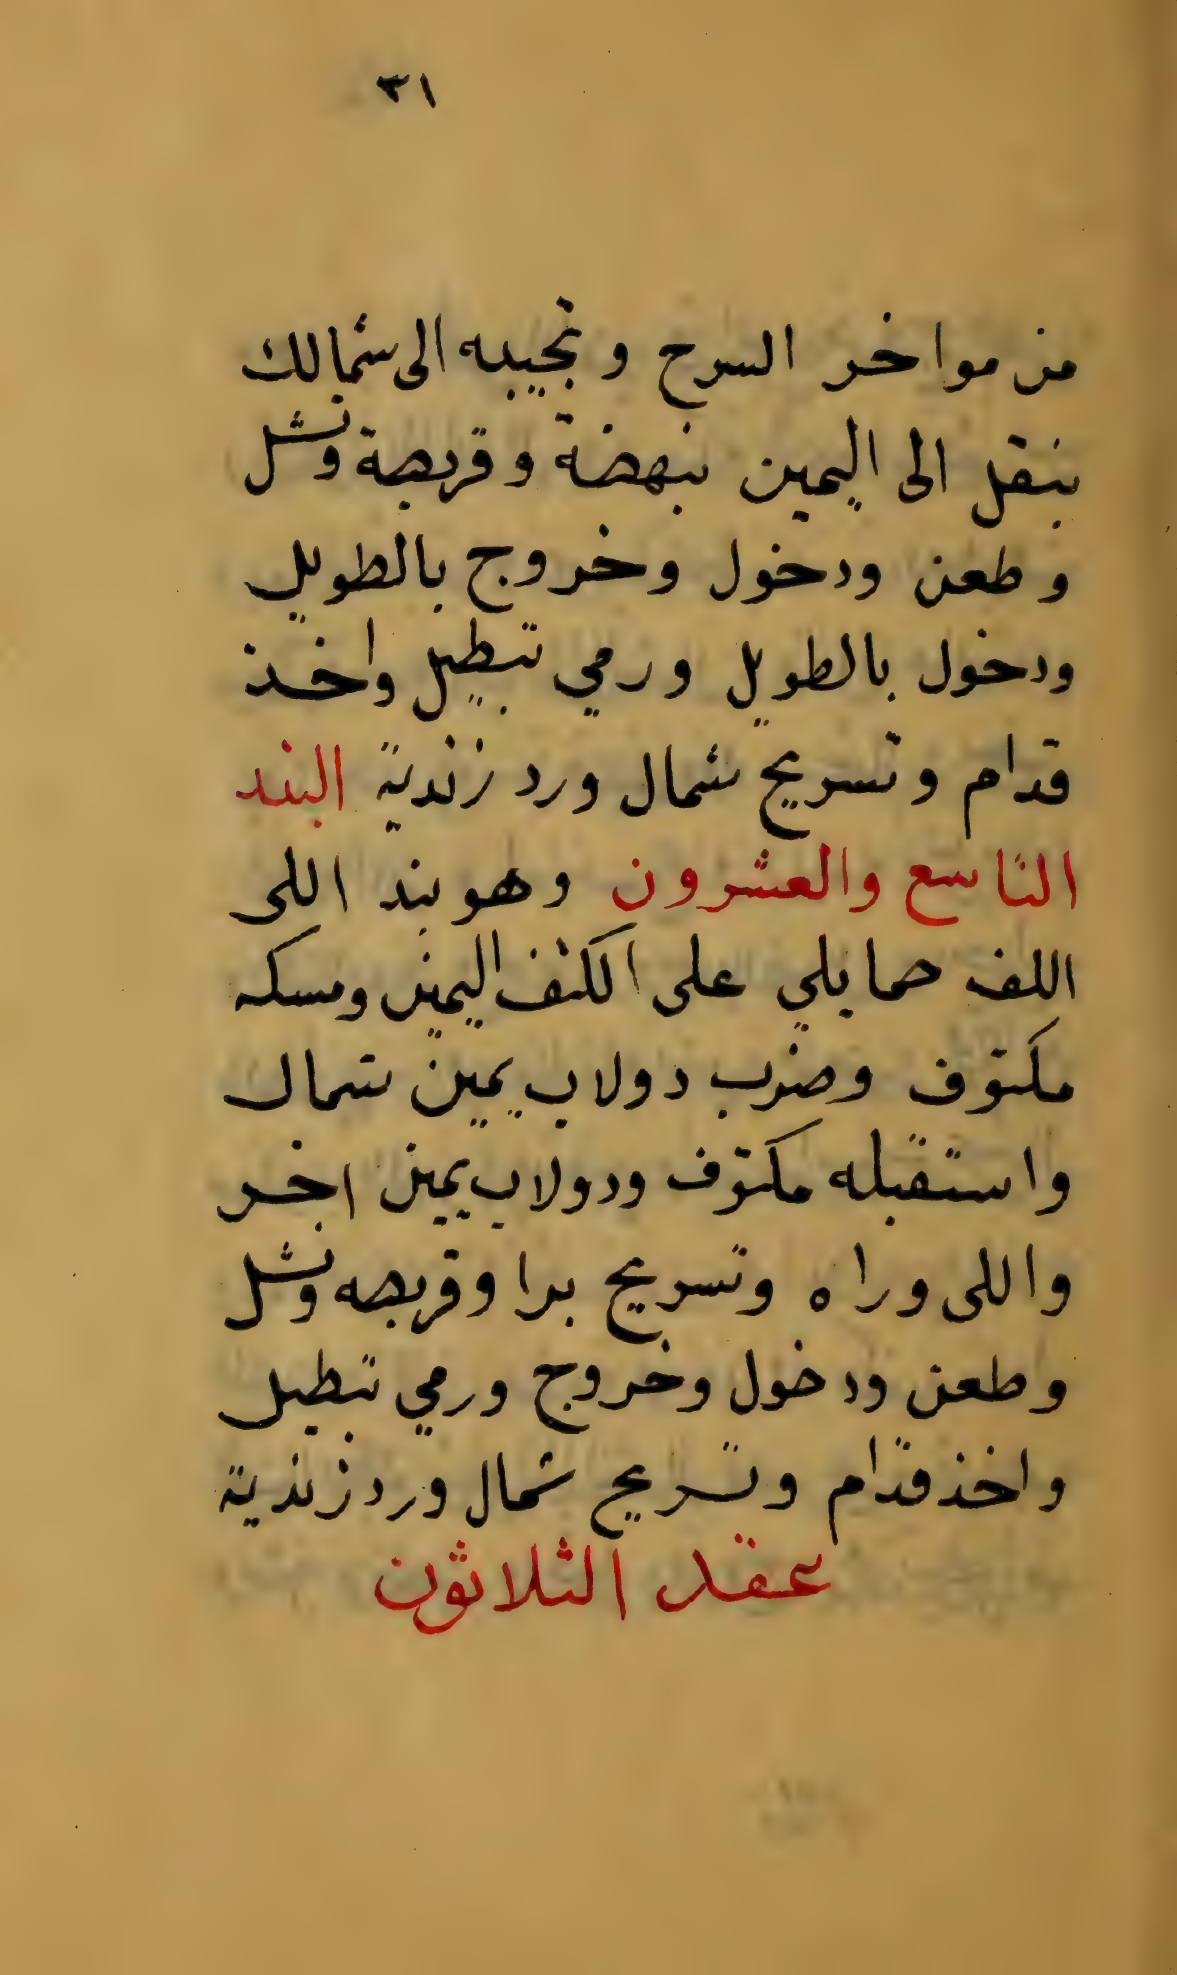 ٣١
من مواخر السرج وتجيبه الى شمالك
بنقل الى اليمين بنهضة وقربصة ونشل
وطعن ودخول وخروج بالطويل
ودخول بالطويل ورمي تبطيل واخذ
قدام وتسريح شمال ورد زندية البند
التاسع والعشرون وهو بند اللى
اللف حمايلي على الكتف اليمين ومسكه
مكتوف وضرب دولاب يمين شمال
واستقبله مكتوف ودولاب يمين اخر
واللى وراه وتسريح برا وقربصه ونشل
وطعن ودخول وخروج ورمي تبطيل
واخذ قدام وتسريح شمال ورد زندية
عقد الثلاثون